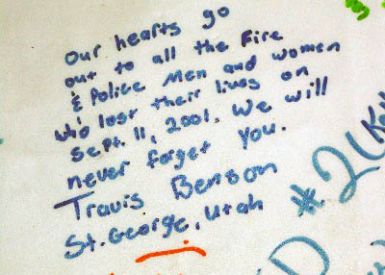 Our hearts go
out to all the Fire
& Police Men and women
who lost their lives on
Sept. 11, 2001. We will
never forget you.
Travis Benson
St. George, Utah